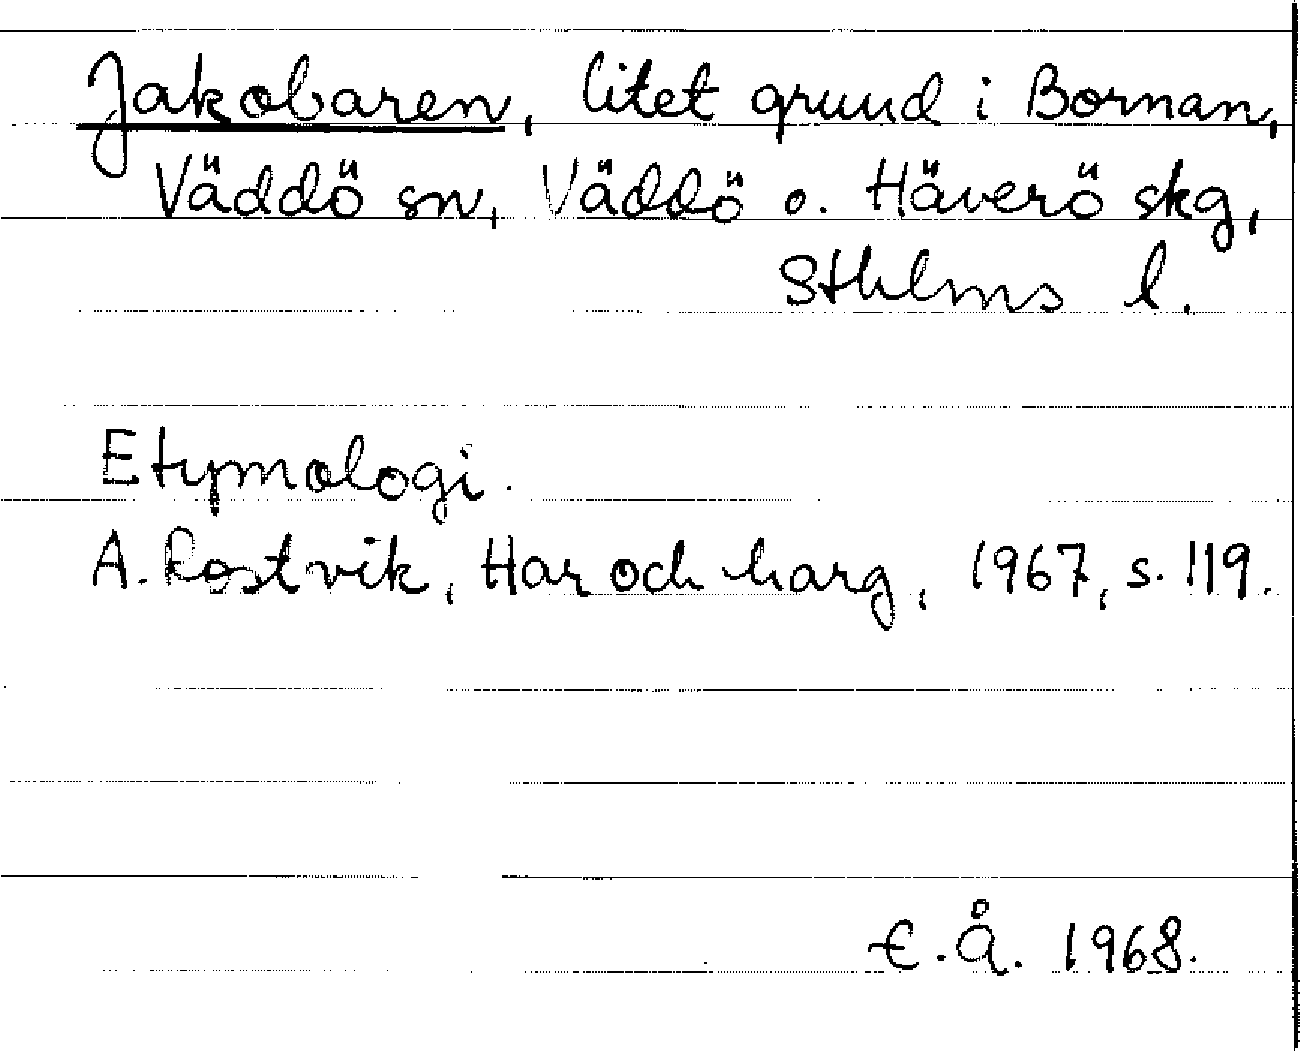 Jakobaren, litet grund i Bornan,
Väddö sn, Väddö o. Häverö skg,
Sthlms l.
Etymologi.
A. Rostvik, Har och harg, 1967, s. 119.
E. Å. 1968.